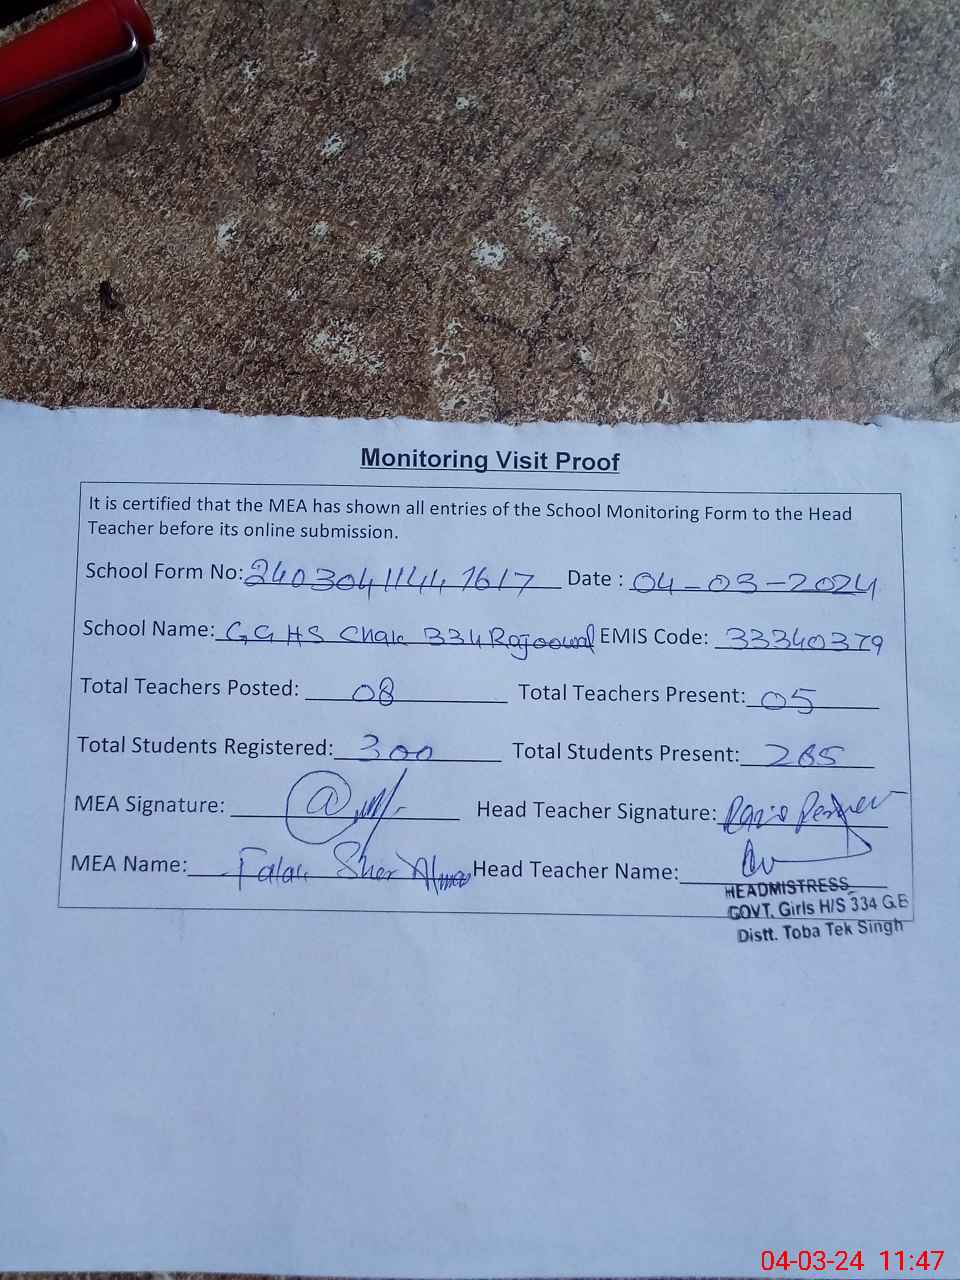 Monitoring Visit Proof
It is certified that the MEA has shown all entries of the School Monitoring Form to the Head
Teacher before its online submission.
School Form No: 2403041144 1617 Date : 04-03-2024
School Name: GGHS Chak 334 Rajoowal EMIS Code: 33340379
Total Teachers Posted: 08 Total Teachers Present: 05
Total Students Registered: 300 Total Students Present: 285
MEA Signature: Head Teacher Signature:
MEA Name: Falak Sher Head Teacher Name:
HEADMISTRESS
GOVT. Girls H/S 334 G.B
Distt. Toba Tek Singh
04-03-24 11:47